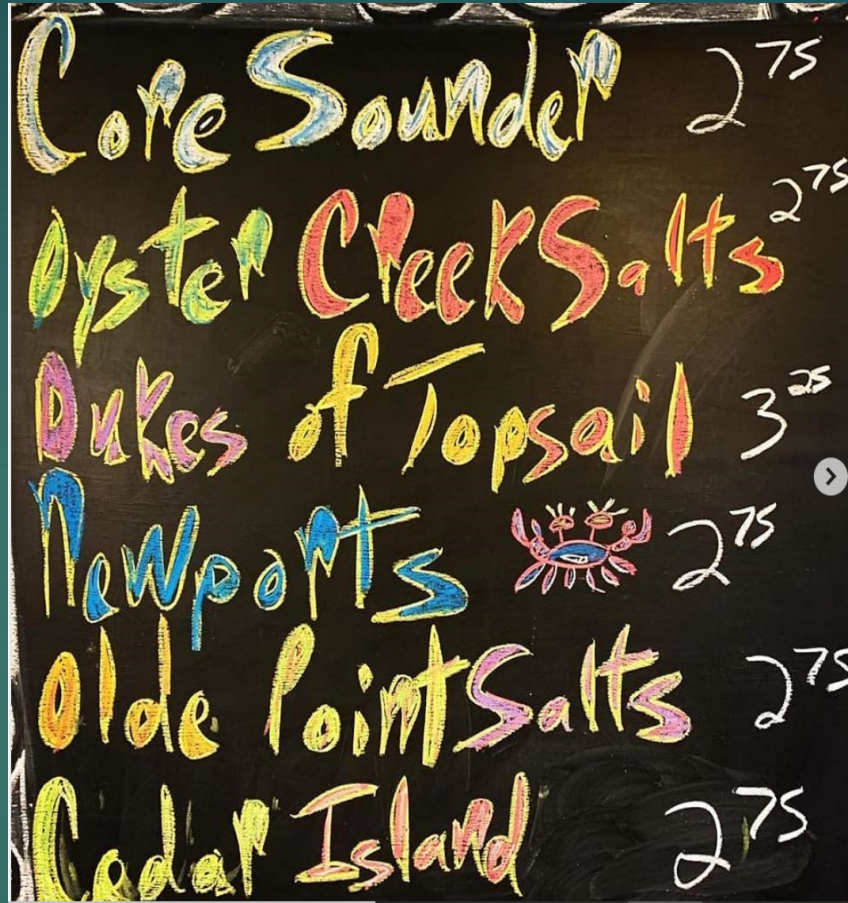 Core Sounder 2 75
Oyster Creek Salts 2 75
Dukes of Topsail 3 25
Newports 2 75
Olde Point Salts 2 75
Cedar Island 2 75